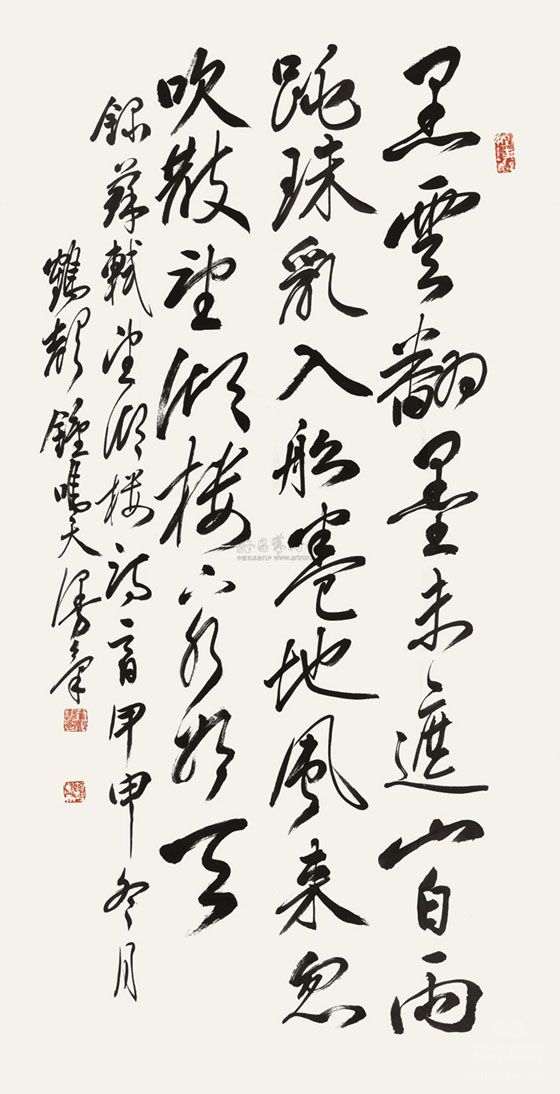 黑雲翻墨未遮山白雨
跳珠亂入船卷地風來忽
吹散望湖樓下水如天
錄蘇軾望湖樓詩一首甲申冬月
鶴龄鍾鳴天漫筆